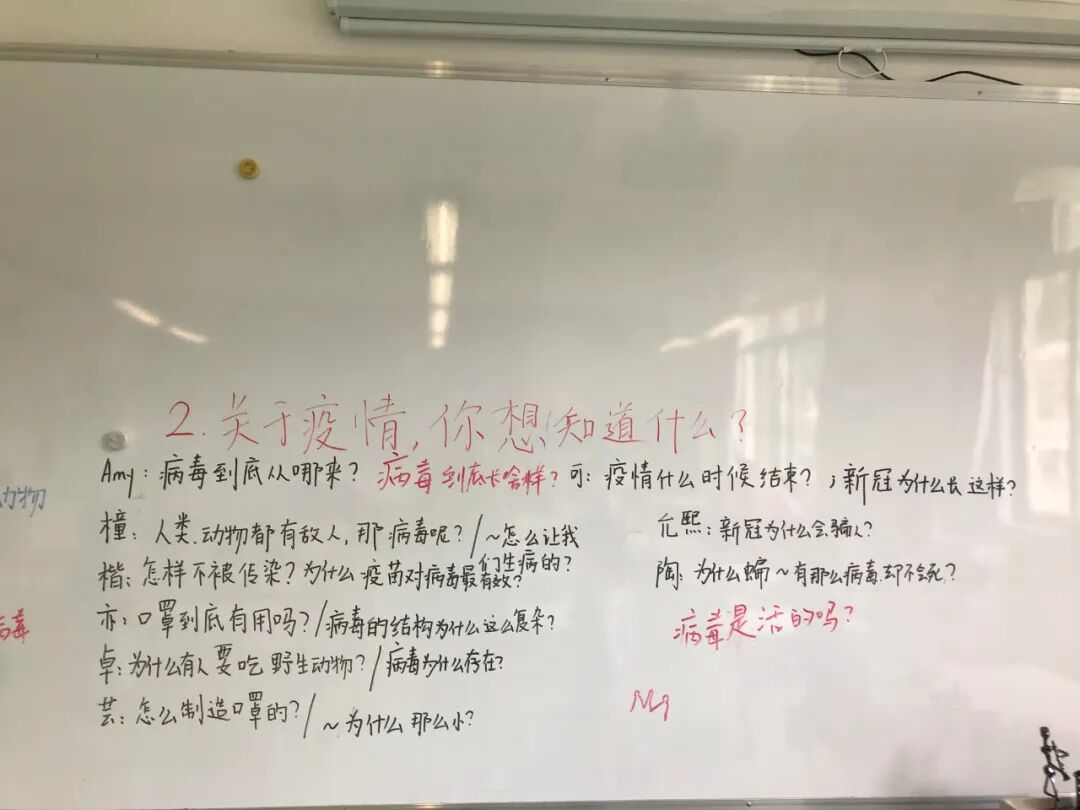 2. 关于疫情,你想知道什么?
Amy: 病毒到底从哪来? 病毒到底长啥样? 可: 疫情什么时候结束? ; 新冠为什么长这样?
动物
橦: 人类、动物都有敌人, 那病毒呢? / ~怎么让我们生病的?
允熙: 新冠为什么会骗人?
楷: 怎样不被传染? 为什么疫苗对病毒最有效?
陶: 为什么蝙~有那么病毒却不会死?
亦: 口罩到底有用吗? / 病毒的结构为什么这么复杂?
病毒是活的吗?
病毒
卓: 为什么有人要吃野生动物? / 病毒为什么存在?
芸: 怎么制造口罩的? / ~为什么那么小?